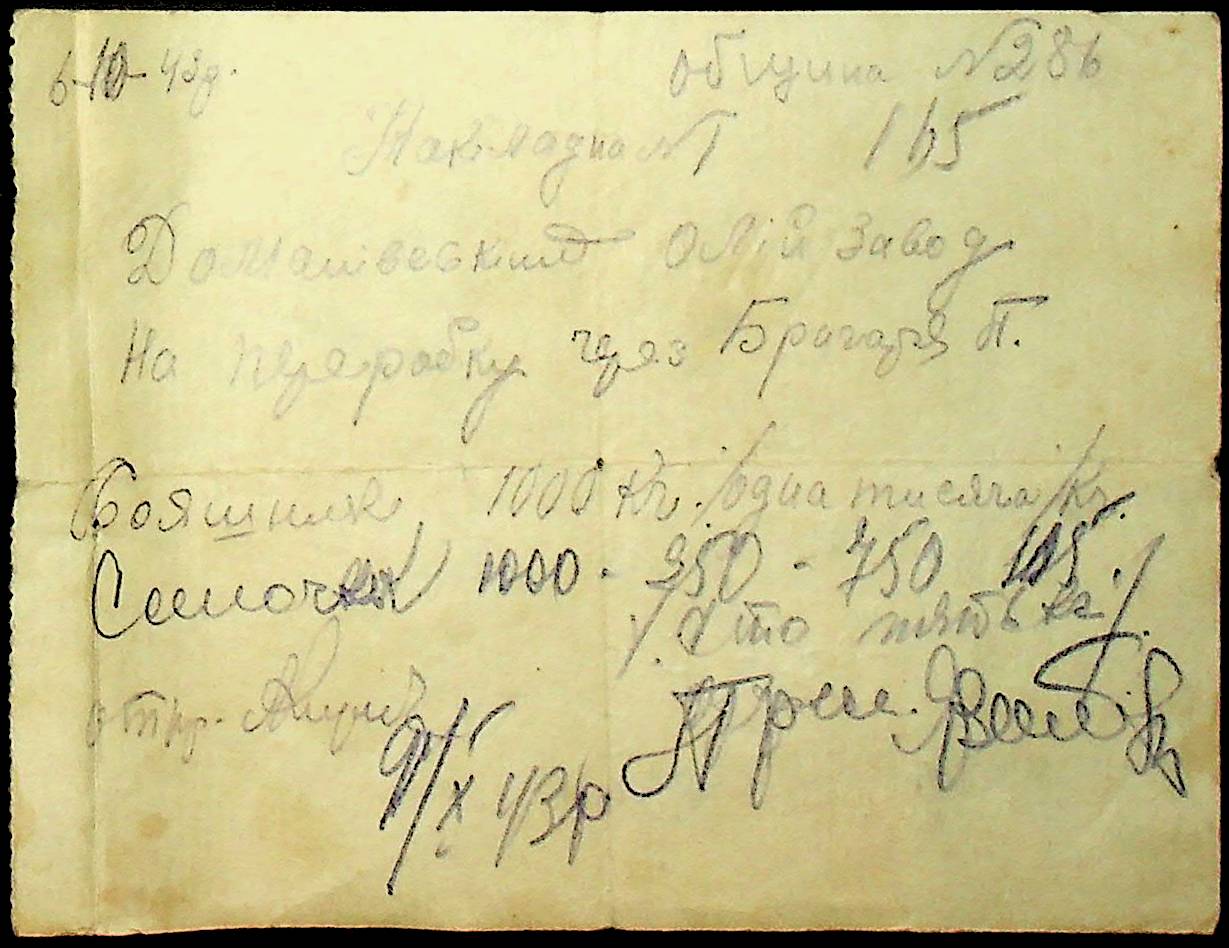 6-10-43 р. община №286
Накладна №1 165
Доманівський Олій завод
На переробку через Брагаря П.
Сояшник 1000 кг. /одна тисяча/ кг.
Симочек 1000 - 250 - 750 105.
/. Сто пять кг /.
отр.
9/X 43 р